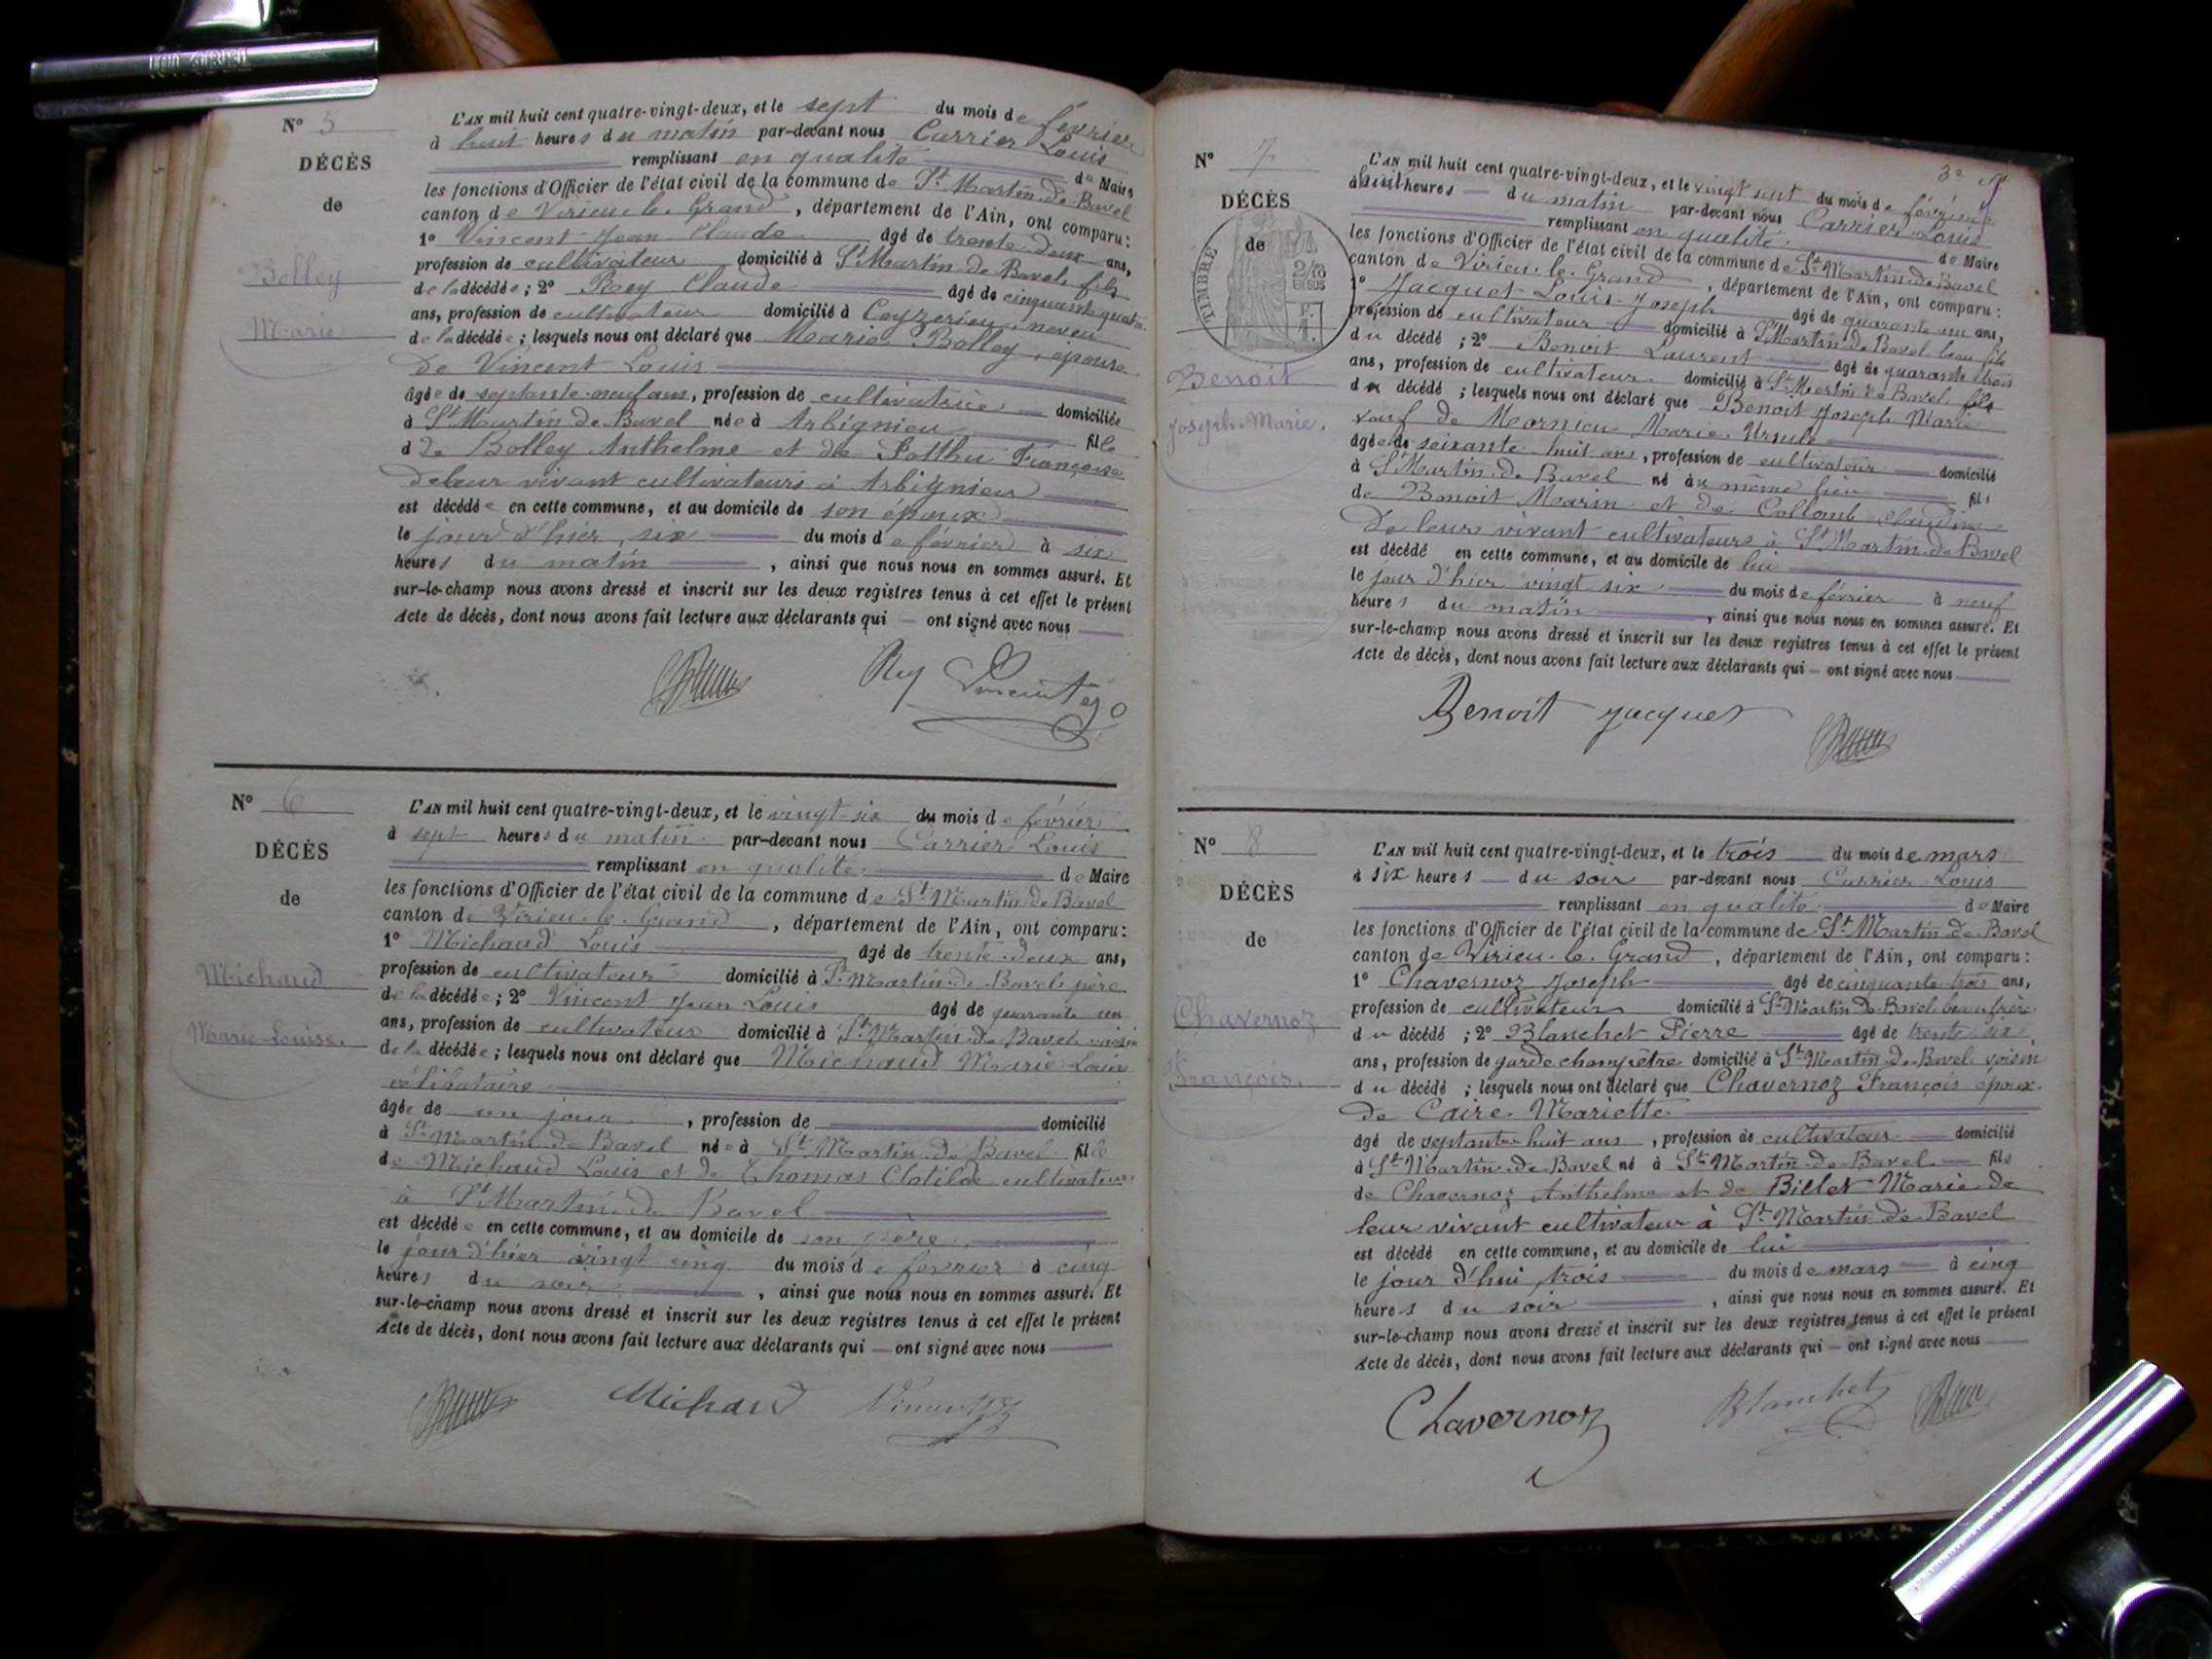 N° 5
DÉCÈS
de
Bolley
Marie
L'AN mil huit cent quatre-vingt-deux, et le sept du mois de février
à huit heures du matin par-devant nous Carrier Louis
remplissant en qualité de Maire
les fonctions d'Officier de l'état civil de la commune de St Martin de Bavel
canton de Virieu-le-Grand, département de l'Ain, ont comparu:
1° Vincent Jean Claude âgé de trente-deux ans,
profession de cultivateur domicilié à St Martin de Bavel, fils
de la décédée; 2° Rey Claude âgé de cinquante quatre
ans, profession de cultivateur domicilié à Ceyzerieu, neveu
de la décédée; lesquels nous ont déclaré que Marie Bolley, épouse
de Vincent Louis
âgée de septante-neuf ans, profession de cultivatrice domiciliée
à St Martin de Bavel née à Arbignieu fille
de Bolley Anthelme et de Françoise
de leur vivant cultivateurs à Arbignieu
est décédée en cette commune, et au domicile de son époux
le jour d'hier six du mois de février à six
heures du matin, ainsi que nous nous en sommes assuré. Et
sur-le-champ nous avons dressé et inscrit sur les deux registres tenus à cet effet le présent
Acte de décès, dont nous avons fait lecture aux déclarants qui — ont signé avec nous
Rey Vincent
N° 6
DÉCÈS
de
Michaud
Marie-Louise.
L'AN mil huit cent quatre-vingt-deux, et le vingt-six du mois de février
à sept heures du matin par-devant nous Carrier Louis
remplissant en qualité de Maire
les fonctions d'Officier de l'état civil de la commune de St Martin de Bavel
canton de Virieu-le-Grand, département de l'Ain, ont comparu:
1° Michaud Louis âgé de trente-deux ans,
profession de cultivateur domicilié à St Martin de Bavel, père
de la décédée; 2° Vincent Jean Louis âgé de quarante un
ans, profession de cultivateur domicilié à St Martin de Bavel voisin
de la décédée; lesquels nous ont déclaré que Michaud Marie Louise
célibataire
âgée de un jour, profession de domicilié
à St Martin de Bavel née à St Martin de Bavel fille
de Michaud Louis et de Thomas Clotilde cultivateurs
à St Martin de Bavel
est décédée en cette commune, et au domicile de son père
le jour d'hier vingt cinq du mois de février à cinq
heures du soir, ainsi que nous nous en sommes assuré. Et
sur-le-champ nous avons dressé et inscrit sur les deux registres tenus à cet effet le présent
Acte de décès, dont nous avons fait lecture aux déclarants qui — ont signé avec nous
Michaud Vincent
N° 7
DÉCÈS
de
TIMBRE
2/10
EN SUS
Benoit
Joseph-Marie.
L'AN mil huit cent quatre-vingt-deux, et le vingt sept du mois de février
à huit heures du matin par-devant nous Carrier Louis
remplissant en qualité de Maire
les fonctions d'Officier de l'état civil de la commune de St Martin de Bavel
canton de Virieu-le-Grand, département de l'Ain, ont comparu:
1° Jacquet Louis Joseph âgé de quarante un ans,
profession de cultivateur domicilié à St Martin de Bavel beau fils
du décédé; 2° Benoit Laurent âgé de quarante trois
ans, profession de cultivateur domicilié à St Martin de Bavel fils
du décédé; lesquels nous ont déclaré que Benoit Joseph Marie
veuf de Mornieu Marie Ursule
âgé de soixante-huit ans, profession de cultivateur domicilié
à St Martin de Bavel né au même lieu fils
de Benoit Marin et de Collomb Claudine
de leur vivant cultivateurs à St Martin de Bavel
est décédé en cette commune, et au domicile de lui
le jour d'hier vingt six du mois de février à neuf
heures du matin, ainsi que nous nous en sommes assuré. Et
sur-le-champ nous avons dressé et inscrit sur les deux registres tenus à cet effet le présent
Acte de décès, dont nous avons fait lecture aux déclarants qui — ont signé avec nous
Benoit Jacquet
N° 8
DÉCÈS
de
Chavernoz
François.
L'AN mil huit cent quatre-vingt-deux, et le trois du mois de mars
à six heures du soir par-devant nous Carrier Louis
remplissant en qualité de Maire
les fonctions d'Officier de l'état civil de la commune de St Martin de Bavel
canton de Virieu-le-Grand, département de l'Ain, ont comparu:
1° Chavernoz Joseph âgé de cinquante trois ans,
profession de cultivateur domicilié à St Martin de Bavel beau frère
du décédé; 2° Blanchet Pierre âgé de trente six
ans, profession de garde champêtre domicilié à St Martin de Bavel voisin
du décédé; lesquels nous ont déclaré que Chavernoz François époux
de Caire Mariette
âgé de septante huit ans, profession de cultivateur domicilié
à St Martin de Bavel né à St Martin de Bavel fils
de Chavernoz Anthelme et de Billet Marie de
leur vivant cultivateur à St Martin de Bavel
est décédé en cette commune, et au domicile de lui
le jour d'hui trois du mois de mars à cinq
heures du soir, ainsi que nous nous en sommes assuré. Et
sur-le-champ nous avons dressé et inscrit sur les deux registres tenus à cet effet le présent
Acte de décès, dont nous avons fait lecture aux déclarants qui — ont signé avec nous
Chavernoz Blanchet